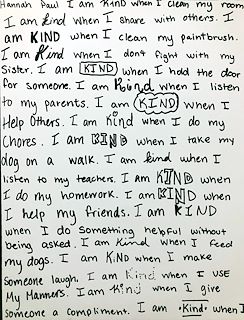 Hannah Paul I am Kind when I clean my room
I am kind when I share with others. I
am KIND when I clean my paintbrush.
I am Kind when I don't fight with my
Sister. I am KIND when I hold the door
for someone. I am Kind when I listen
to my parents. I am KIND when I
Help Others. I am kind when I do my
Chores. I am KIND when I take my
dog on a walk. I am kind when I
listen to my teachers. I am KIND when
I do my homework. I am KIND when
I help my friends. I am KIND
when I do Something helpful without
being asked. I am Kind when I feed
my dogs. I am KiND when I make
Someone laugh. I am Kind when I USE
My Manners. I am kind when I give
Someone a compliment. I am Kind when I